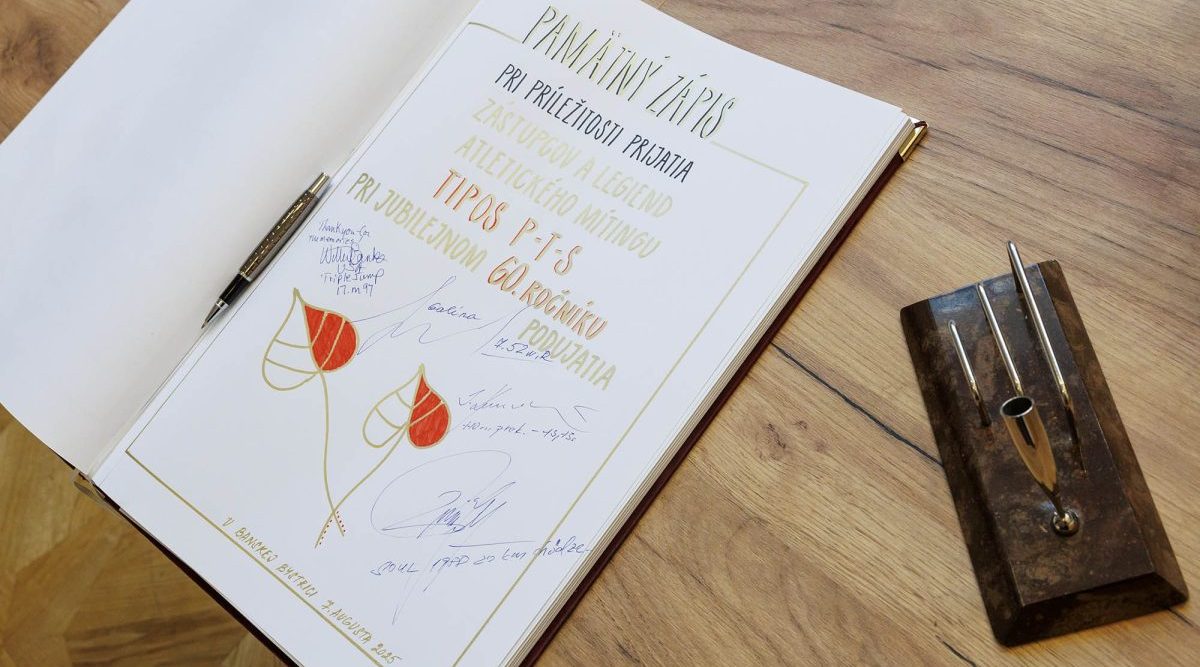 PAMÄTNÝ ZÁPIS
PRI PRÍLEŽITOSTI PRIJATIA
ZÁSTUPCOV A LEGIEND
ATLETICKÉHO MÍTINGU
TIPOS P-T-S
PRI JUBILEJNOM 60. ROČNÍKU
PODUJATIA
Thank you for
the memories
Willie Banks
USA
Triple Jump
17.m 97
7.52 WR
110 m prek. - 13,
20 km chôdze
V BANSKEJ BYSTRICI 7. AUGUSTA 2025